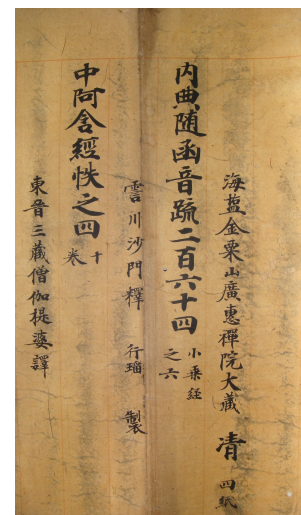 海盐金粟山廣惠禪院大藏 清 四紙
內典隨函音䟽二百六十四 小乘経之六
霅川沙門釋 行瑫 製
中阿含經帙之四 十卷
東晉三藏僧伽提婆譯